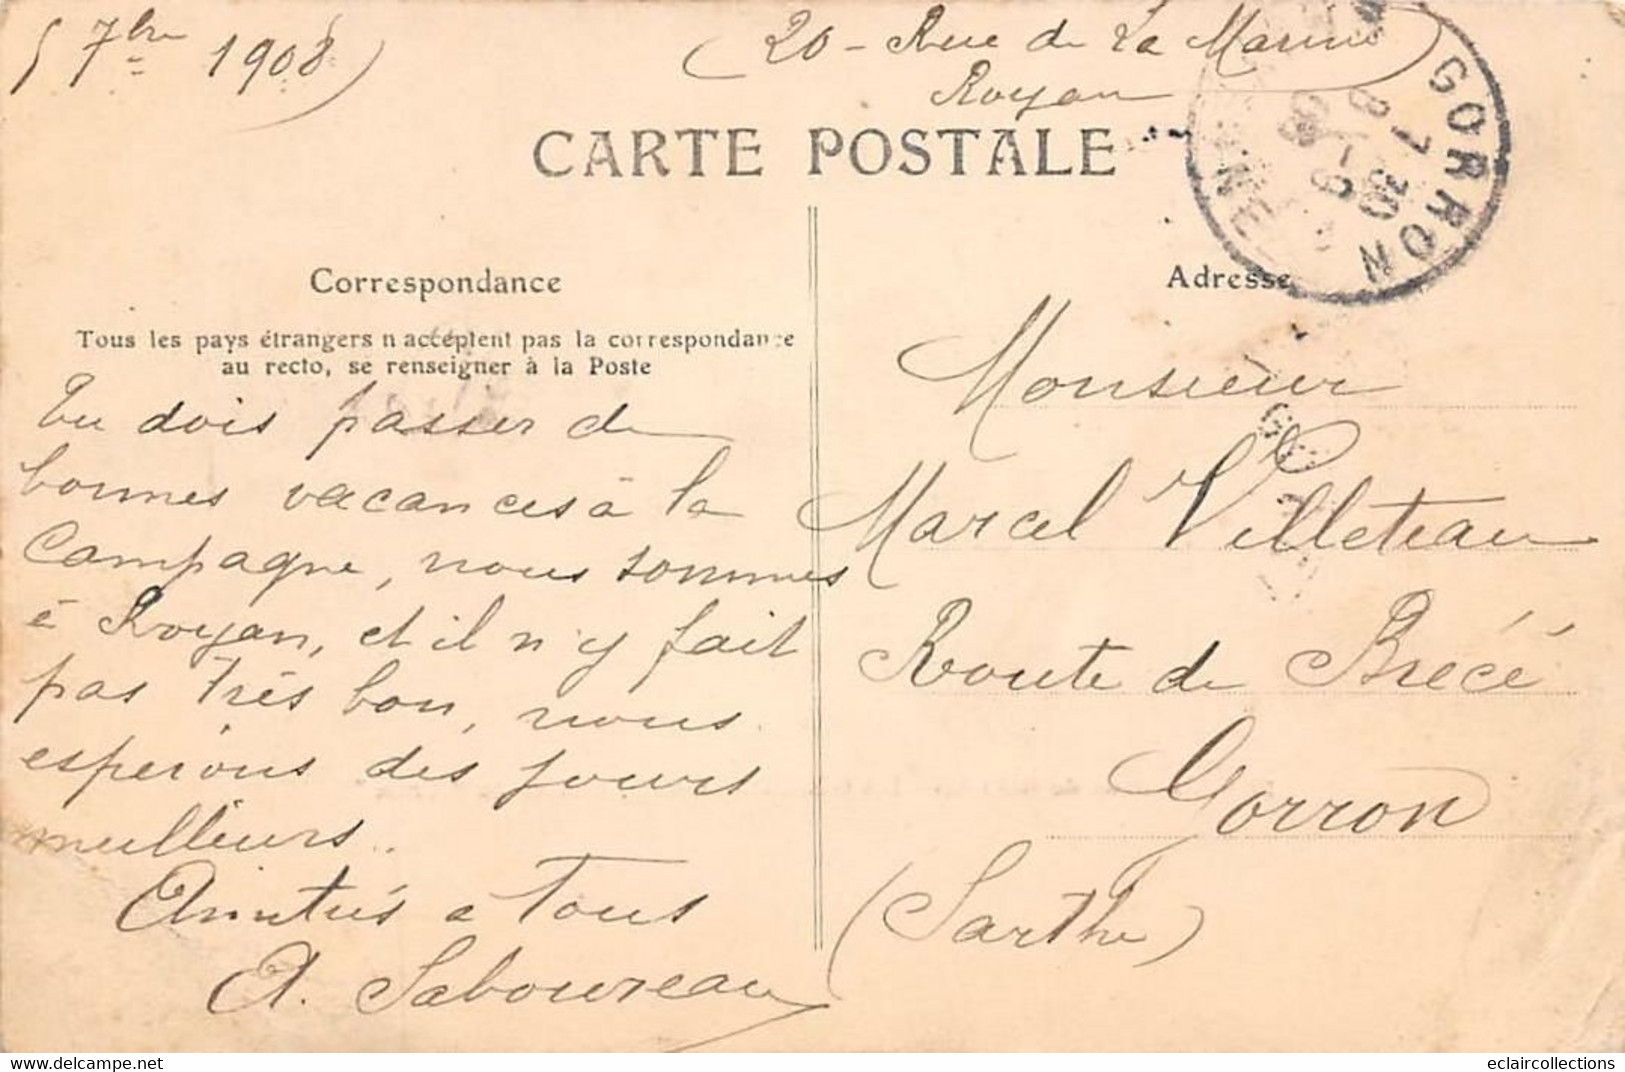 5 7bre 1908
(20 - Rue de La Marine)
Royan
CARTE POSTALE
GORRON
8 7 30
-9
08
Correspondance
Tous les pays étrangers n acceptent pas la correspondance
au recto, se renseigner à la Poste
Tu dois passer de
bonnes vacances à la
Campagne, nous sommes
à Royan, et il n'y fait
pas très bon, nous
esperons des jours
meilleurs.
Amitiés a Tous
A. Saboureau
Adresse
Monsieur
Marcel Villeteau
Route de Brécé
Gorron
(Sarthe)
delcampe.net
eclaircollections